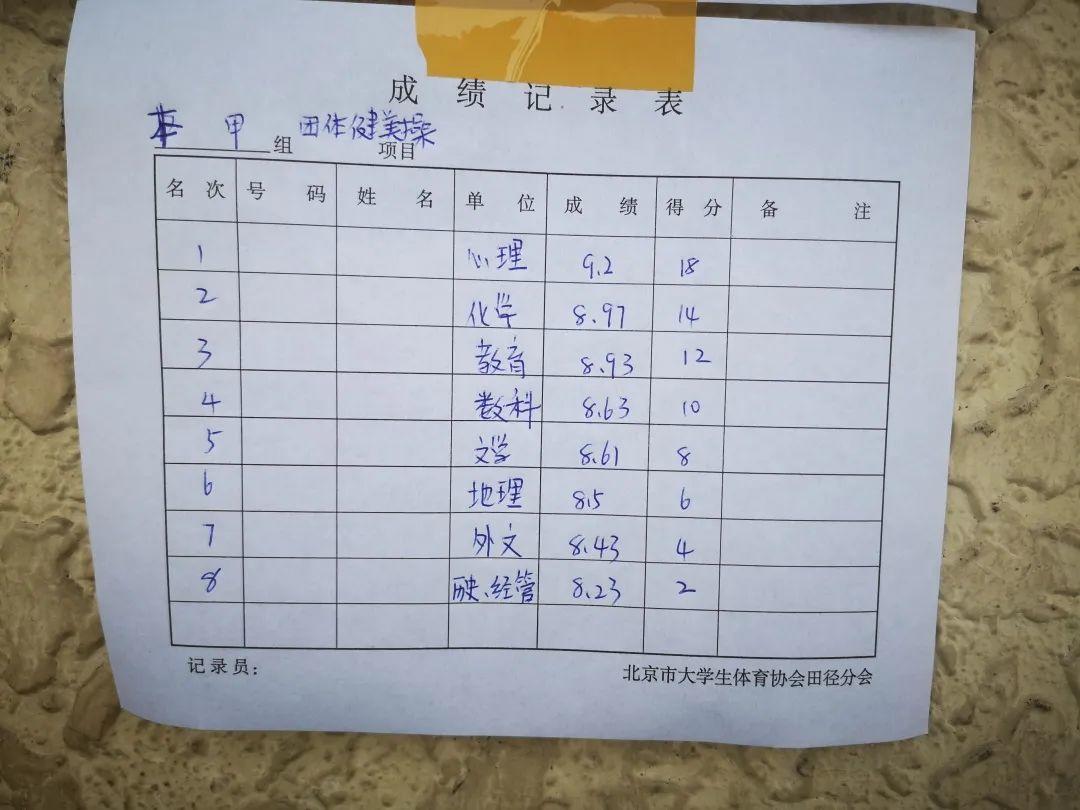 成绩记录表
本 甲 组 团体健美操 项目
名次 号码 姓名 单位 成绩 得分 备注
1 心理 9.2 18
2 化学 8.97 14
3 教育 8.93 12
4 数科 8.63 10
5 文学 8.61 8
6 地理 8.5 6
7 外文 8.43 4
8 历史、经管 8.23 2
记录员：
北京市大学生体育协会田径分会